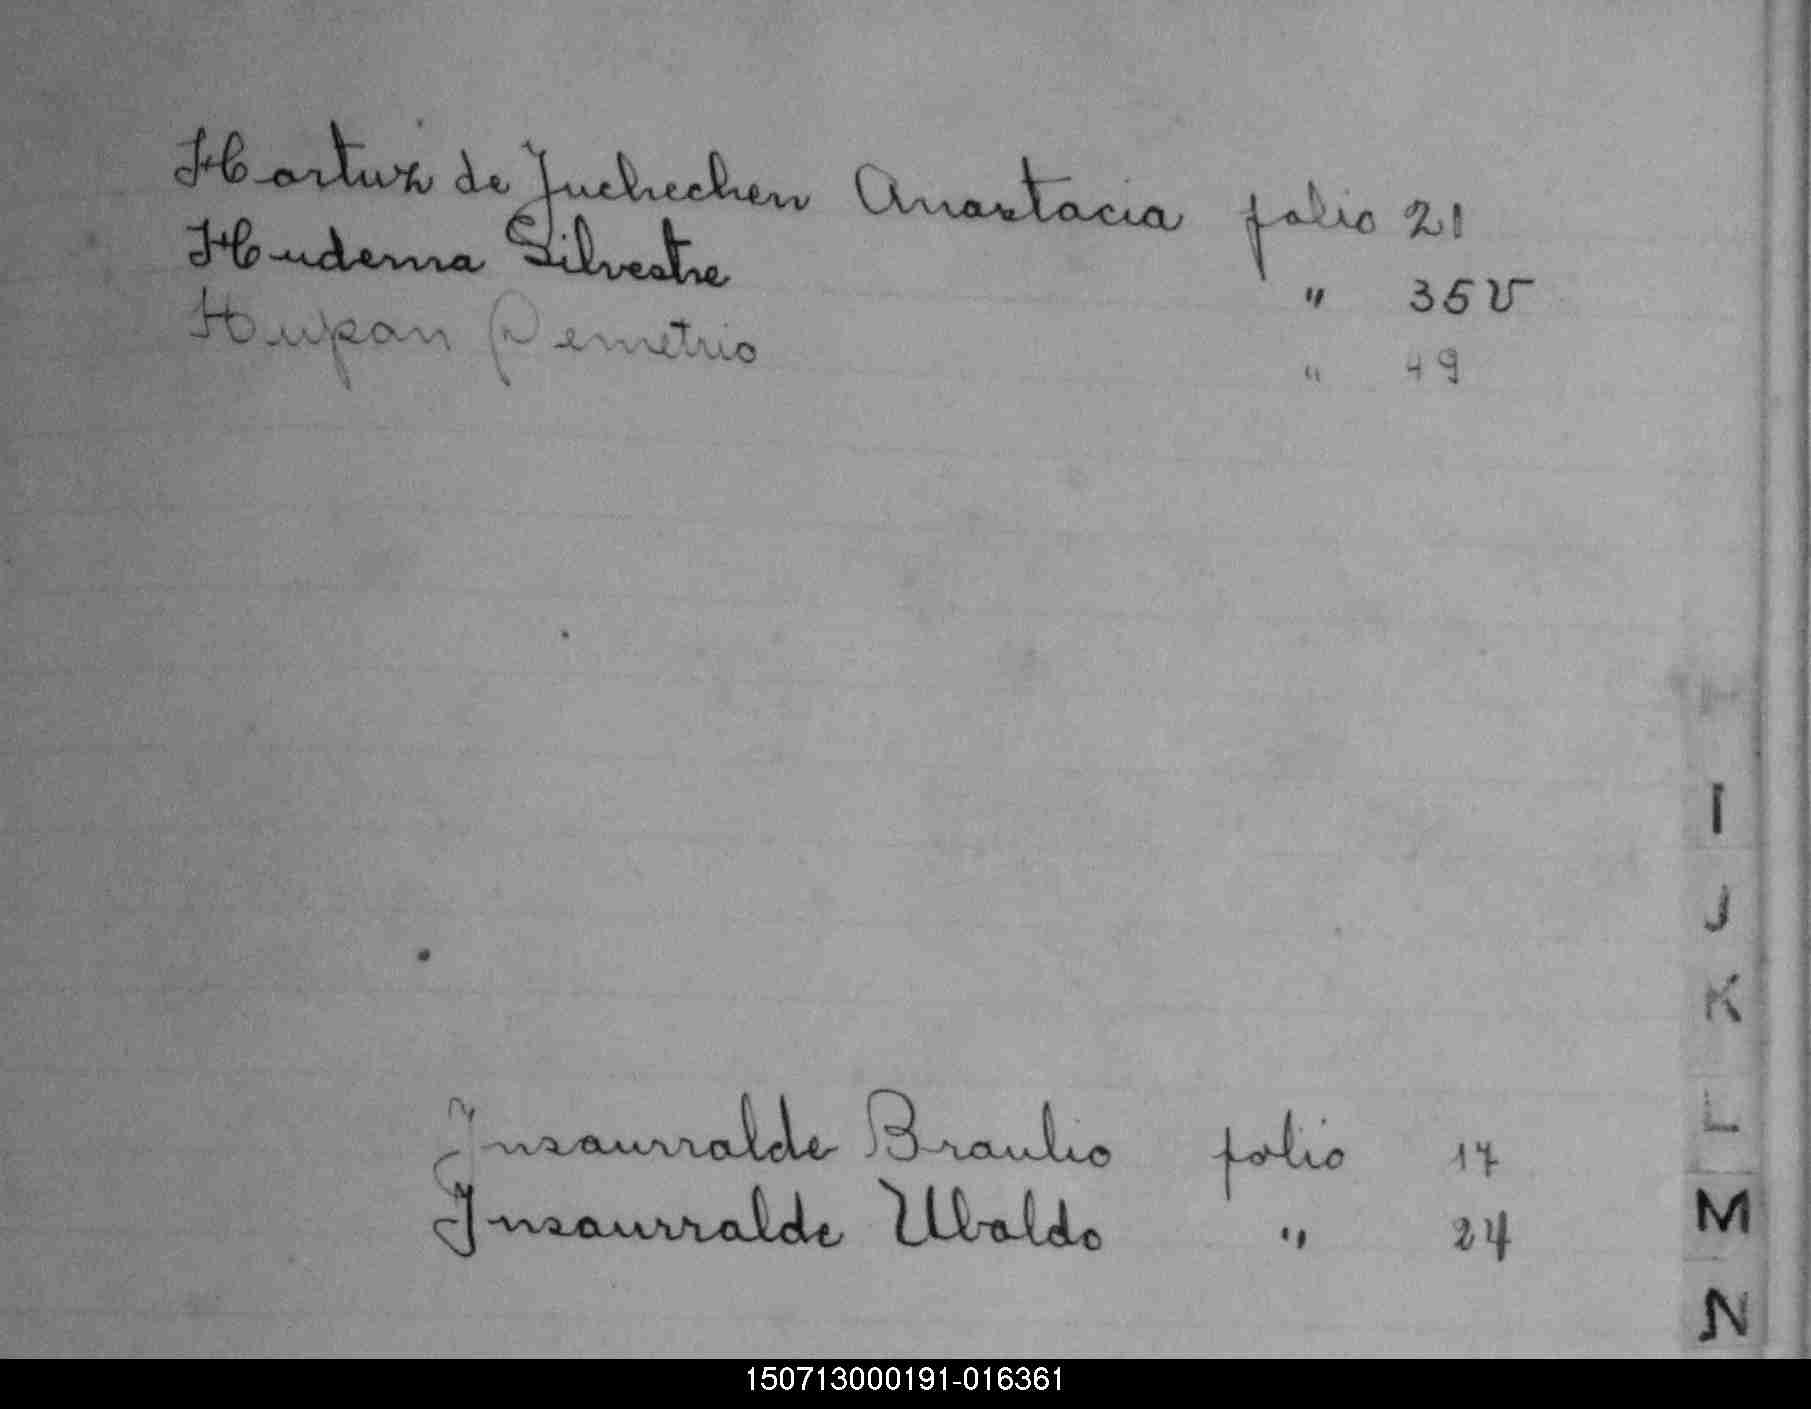 Hartuz de Juchechen Anastacia folio 21
Hudema Silvestre " 35 V
Hupan Demetrio " 49
Insaurralde Braulio folio 17
Insaurralde Ubaldo " 24
H
I
J
K
L
M
N
150713000191-016361